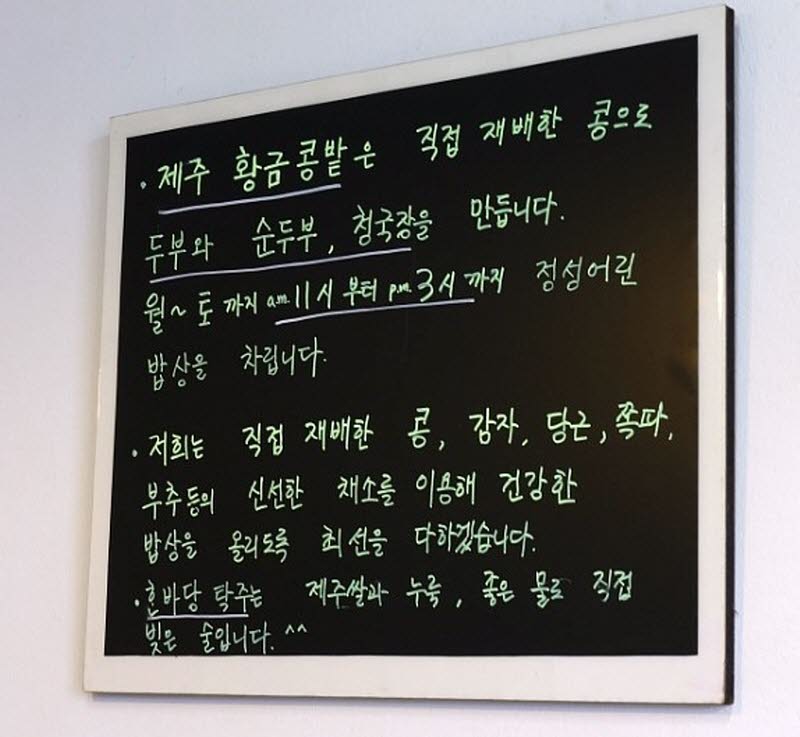 · 제주 황금콩밭은 직접 재배한 콩으로
두부와 순두부, 청국장을 만듭니다.
월~토 까지 a.m. 11시 부터 p.m. 3시 까지 정성어린
밥상을 차립니다.
· 저희는 직접 재배한 콩, 감자, 당근, 쪽파,
부추등의 신선한 채소를 이용해 건강한
밥상을 올리도록 최선을 다하겠습니다.
· 한바당 탁주는 제주쌀과 누룩, 좋은 물로 직접
빚은 술입니다. ^^